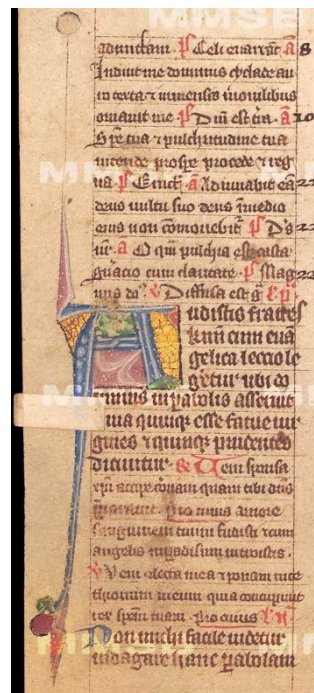 aduncam. ps Celi enarrāt a 8
Induit me dominus cyclade au
ro texta ⁊ inmensis monilibus
ornauit me ps Dñi est t̃ra. a 20
Spē tua ⁊ pulchritudine tua
intende prospe procede ⁊ reg
na ps Eruct̃. a Adiuuabit eā 22
deus uultu suo deus ĩ medio
eius non cōmouebit᷑ ps D's
nr̄. a O qm̄ pulchra est casta
g̃nacio cum claritate ps Mag 22
nus do². v Diffusa est g̃ l'. p'
Audistis fratres
k̃mi cum euā
gelica leccio le
geretur ubi do
minus in p̱abolis asseruit
ua quinqꝫ esse fatue uir
gines ⁊ quinqꝫ prudentes
dicuntur. R Ueni sponsa
xp̄i accipe coronam quam tibi dn̄s
p̃parauit. Pro cuius amore
sanguinem tuum fudisti ⁊ cum
angelis in paradisum introistis.
v Veni electa mea ⁊ ponam in te
thronum meum quia concupiuit
rex spem̃ tuam. Pro cuius l' ii
Non michi facile uidetur
indagare hanc p̱abolam